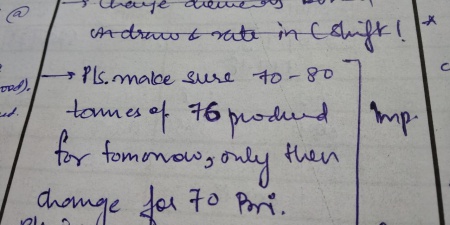 @
on draw & rate in C shift! *
→ Pls. make sure 70-80
tonnes of 76 produced Imp.
for tomorrow, only then
change for 70 Bri.